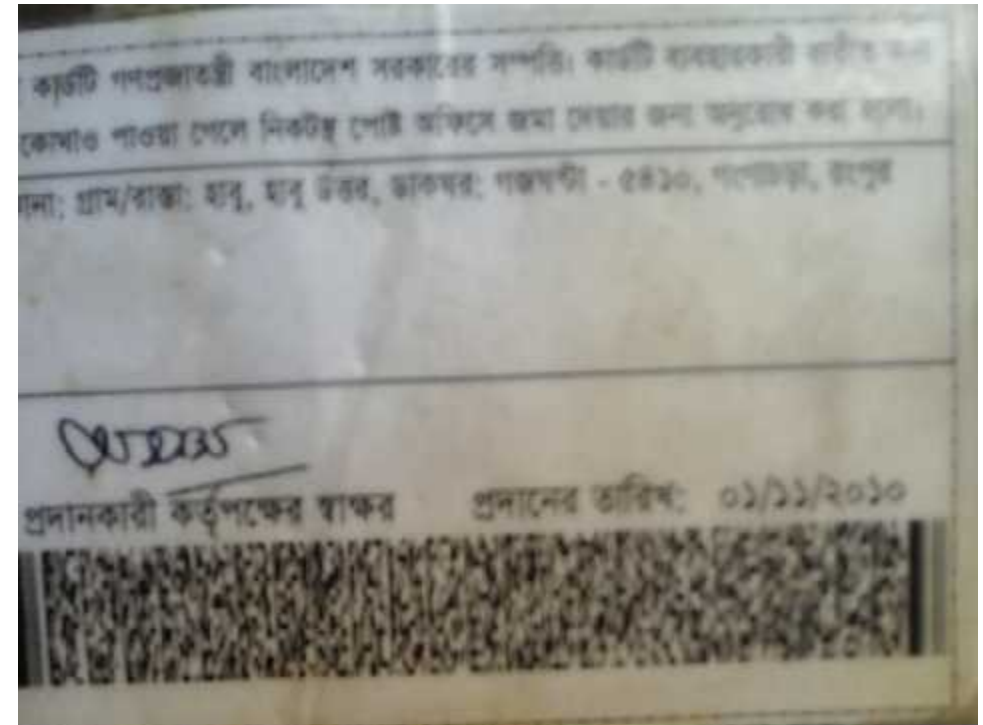 কার্ডটি গণপ্রজাতন্ত্রী বাংলাদেশ সরকারের সম্পত্তি। কার্ডটি ব্যবহারকারী ব্যতীত অন্য
কোথাও পাওয়া গেলে নিকটস্থ পোষ্ট অফিসে জমা দেয়ার জন্য অনুরোধ করা হলো।
গ্রাম/রাস্তা: হাবু, হাবু উত্তর, ডাকঘর: গজঘন্টা - ৫৪১০, গংগাচড়া, রংপুর
প্রদানকারী কর্তৃপক্ষের স্বাক্ষর প্রদানের তারিখ: ০১/১১/২০১০